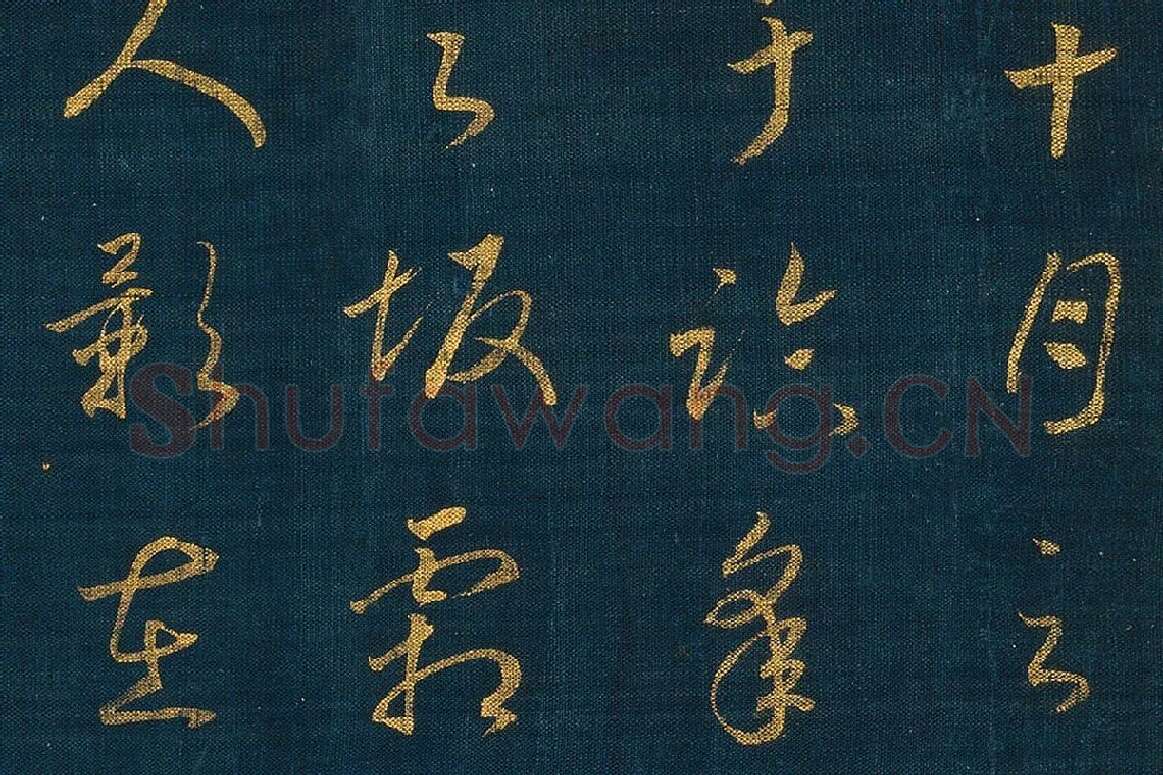 十月之
于臨皋
之坂霜
人影在
Shufawang.CN